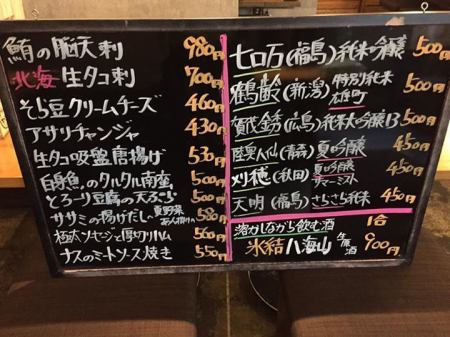 鮪の脳天刺 980円
北海生タコ刺 700円
そら豆クリームチーズ 460円
アサリチャンジャ 430円
生タコ吸盤唐揚げ 530円
白身魚のタルタル南蛮 500円
とろーり豆腐の天ぷら 500円
ササミの揚げだし 夏野菜あん掛け 580円
極太ソーセージと厚切りハム 560円
ナスのミートソース焼き 550円
七ロ万(福島)純米吟醸 500円
鶴齢(新潟)特別純米 雄町 500円
賀茂錺(広島)純米大吟醸13 500円
陸奥八仙(青森)夏吟醸 450円
刈穂(秋田)夏吟醸 サマーミスト 450円
天明(福島)さらさら純米 450円
溶かしながら飲む酒 1合
氷結八海山 生原酒 900円